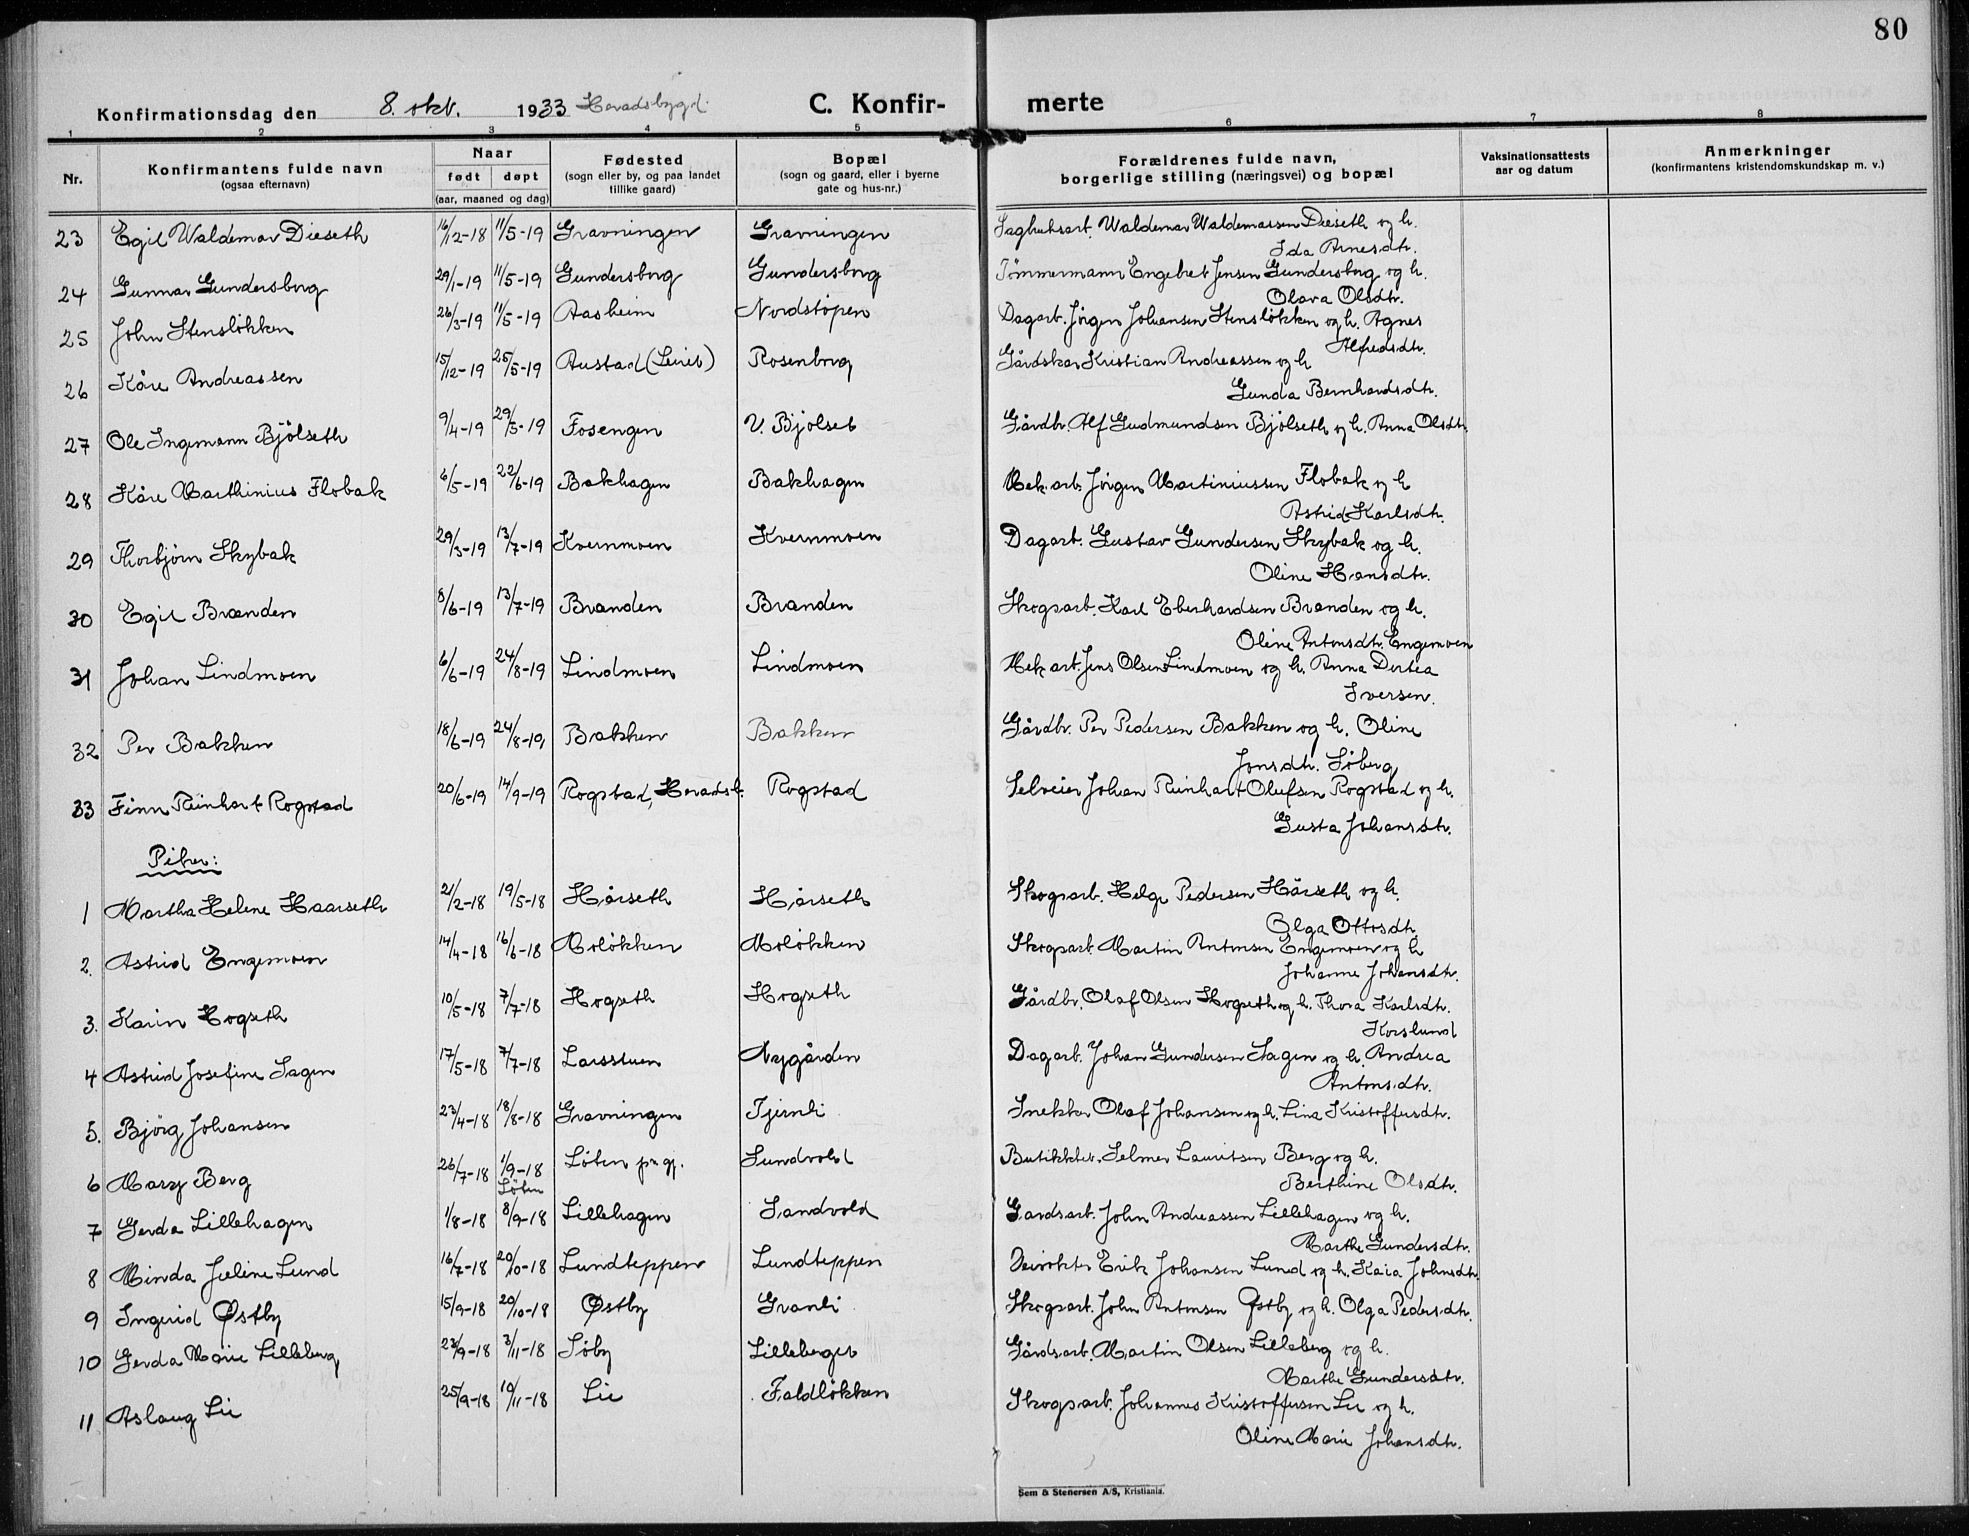 80
Konfirmationsdag den 8. okt. 1933 Heradsbygd. C. Konfir- merte
1 2 3 4 5 6 7 8
Nr. Konfirmantens fulde navn (ogsaa efternavn) Naar født døpt (aar, maaned og dag) Fødested (sogn eller by, og paa landet tillike gaard) Bopæl (sogn og gaard, eller i byerne gate og hus-nr.) Forældrenes fulde navn, borgerlige stilling (næringsvei) og bopæl Vaksinationsattests aar og datum Anmerkninger (konfirmantens kristendomskundskap m. v.)
23 Egil Waldemar Dieseth 16/12-18 11/5-19 Gravningen Gravningen Sagbruksarb. Waldemar Waldemarsen Dieseth og h.
Ida Arnesdtr.
24 Gunnar Gundersborg 29/1-19 11/5-19 Gundersborg Gundersborg Tömmermann Engebret Jensen Gundersborg og h.
Olava Olsdtr.
25 John Stenslökken 26/3-19 11/5-19 Aasheim Nordstöpen Dagarb. Jörgen Johansen Stenslökken og h. Agnes
Alfredsdtr.
26 Kåre Andreassen 15/12-19 25/5-19 Austad (Leiret) Rosenborg Gårdskar Kristian Andreassen og h
Gunda Bernhardsdtr.
27 Ole Ingemann Bjölseth 9/4-19 29/5-19 Fosengen V. Bjölset Gårdbr. Alf Gudmundsen Bjölseth og h. Anna Olsdtr.
28 Kåre Marthinius Flobak 6/5-19 22/6-19 Bakhagen Bakhagen Mek. arb. Jörgen Martiniussen Flobak og h
Astrid Karlsdtr.
29 Thorbjörn Skybak 29/3-19 13/7-19 Kvernmoen Kvernmoen Dagarb. Gustav Gundersen Skybak og h.
Oline Hansdtr.
30 Egil Brænden 8/6-19 13/7-19 Brænden Brænden Skogsarb. Karl Eberhardsen Brænden og h.
Oline Antonsdtr. Engemoen
31 Johan Lindmoen 6/6-19 24/8-19 Lindmoen Lindmoen Mek arb. Jens Olsen Lindmoen og h. Anna Dortea
Iversen.
32 Per Bakken 18/6-19 24/8-19, Bakken Bakken Gårdbr. Per Pedersen Bakken og h. Oline
Jonsdtr. Söberg
33 Finn Reinhart Rogstad 20/6-19 14/9-19 Rogstad, Heradsb. Rogstad Selveier Johan Reinhart Olufsen Rogstad og h.
Gusta Johansdtr.
Piker:
1 Martha Helene Haarseth 21/2-18 19/5-18 Hårseth Hårseth Skogsarb. Helge Pedersen Hårseth og h.
Olga Ottosdtr.
2. Astrid Engemoen 14/4-18 16/6-18 Molökken Molökken Skogsarb. Martin Antonsen Engemoen og h
Johanne Johansdtr.
3. Karin Hogseth 10/5-18 7/7-18 Hogseth Hogseth Gårdbr. Olaf Olsen Hogseth og h. Thora Karlsdtr.
Korslund
4 Astrid Josefine Sagen 17/5-18 7/7-18 Larsstuen Nygården Dagarb. Johan Gundersen Sagen og h. Andrea
Antonsdtr.
5. Björg Johansen 23/4-18 18/8-18 Gravningen Tjernli Snekker Olaf Johansen og h. Lina Kristoffersdtr.
6 Mary Berg 26/7-18 1/9-18 Löten Löten pr.gj. Sundvold Butikkbr. Selmer Lauritsen Berg og h.
Berthine Olsdtr.
7 Gerda Lillehagen 1/8-18 8/9-18 Lillehagen Sandvold Gardsarb. John Andreassen Lillehagen og h.
Marthe Gundersdtr.
8 Minda Jeline Lund 16/7-18 20/10-18 Lundteppen Lundteppen Veivokter Erik Johansen Lund og h. Kaia Johnsdtr.
9 Ingerid Østby 15/9-18 20/10-18 Østby Granli Skogsarb. John Antonsen Østby og h. Olga Pedersdtr.
10 Gerda Marie Lilleberg 23/9-18 3/11-18 Söby Lilleberget Gårdsarb. Martin Olsen Lilleberg og h.
Marthe Gundersdtr.
11 Aslaug Lie 25/9-18 10/11-18 Lie Faldlökken Skogsarb. Johannes Kristoffersen Lie og h.
Oline Marie Johansdtr.
Sem & Stenersen A/S, Kristiania.